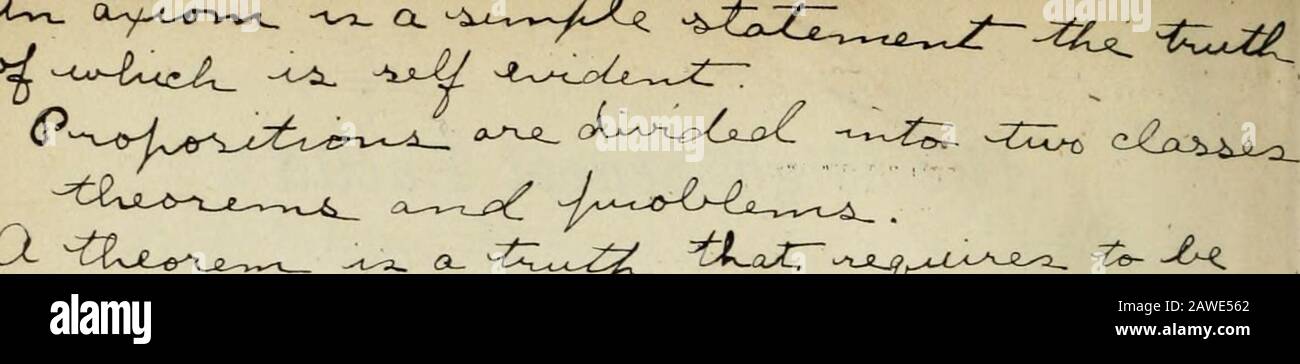 An axiom is a simple statement the truth
of which is self evident.
Propositions are divided into two classes
theorems and problems.
A theorem is a truth that requires to be
alamy
Image ID: 2AWE562
www.alamy.com